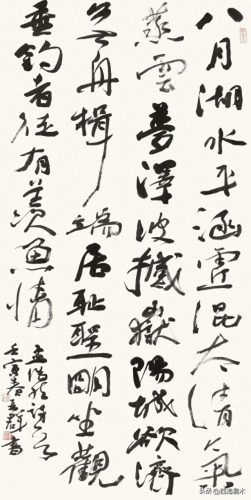 八月湖水平涵虛混太清氣
蒸雲夢澤波撼嶽陽城欲濟
無舟楫端居恥聖明坐觀
垂釣者徒有羨魚情
孟浩然詩
壬寅春
書
头条